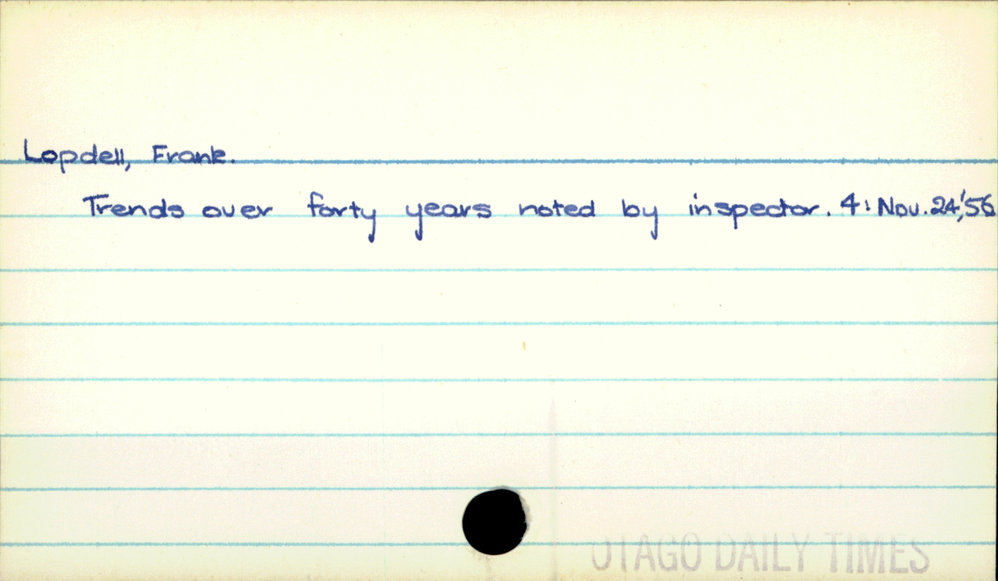 Lopdell, Frank.
Trends over forty years noted by inspector. 4: Nov. 24,'56
OTAGO DAILY TIMES